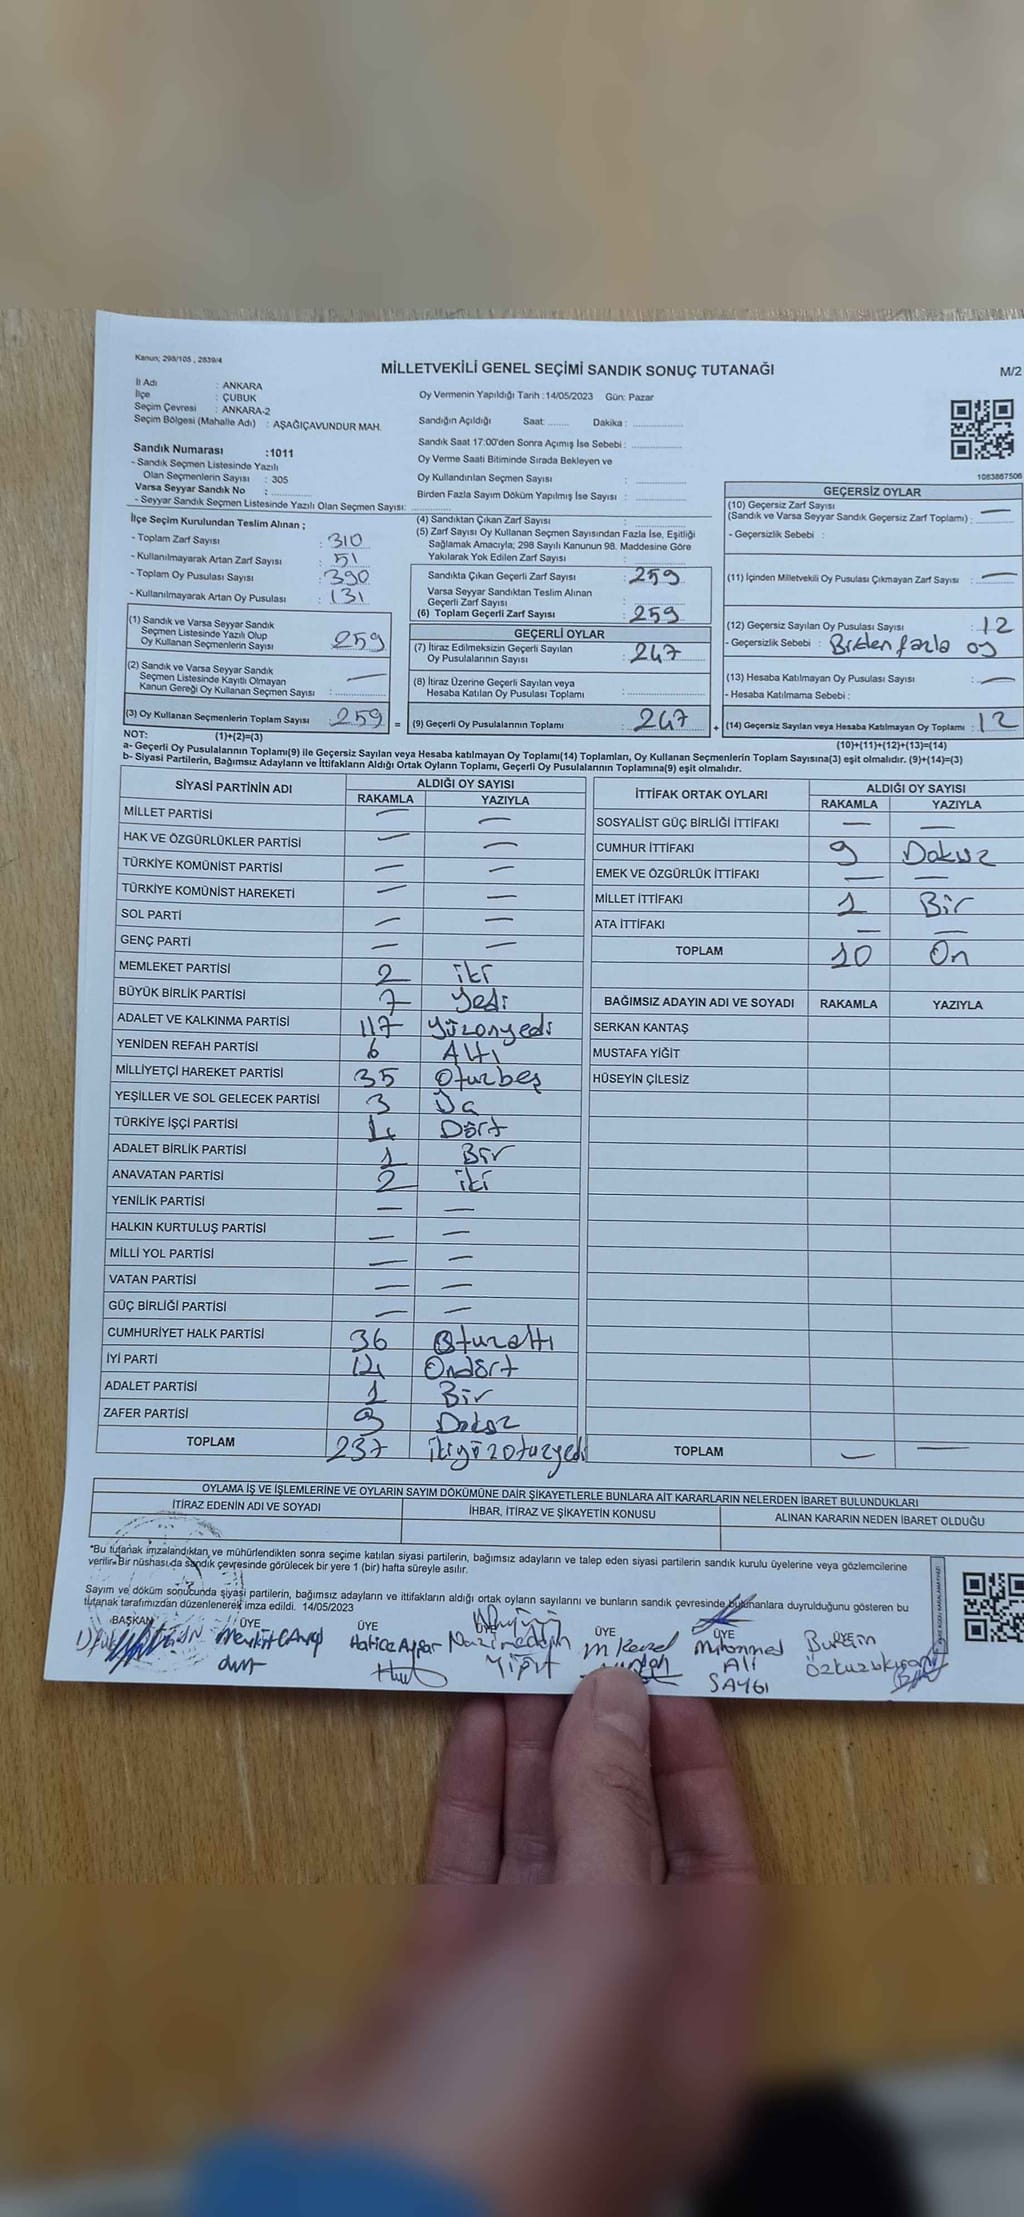 Kanun; 298/105 , 2839/4
MİLLETVEKİLİ GENEL SEÇİMİ SANDIK SONUÇ TUTANAĞI
M/2
İl Adı : ANKARA
İlçe : ÇUBUK
Seçim Çevresi : ANKARA-2
Seçim Bölgesi (Mahalle Adı) : AŞAĞIÇAVUNDUR MAH.
Oy Vermenin Yapıldığı Tarih :14/05/2023 Gün: Pazar
Sandığın Açıldığı Saat: ........ Dakika : ................
Sandık Saat 17:00'den Sonra Açımış İse Sebebi : ................
Oy Verme Saati Bitiminde Sırada Bekleyen ve
Oy Kullandırılan Seçmen Sayısı : ................
Birden Fazla Sayım Döküm Yapılmış İse Sayısı : ................
Sandık Numarası :1011
- Sandık Seçmen Listesinde Yazılı
Olan Seçmenlerin Sayısı : 305
Varsa Seyyar Sandık No : ............
- Seyyar Sandık Seçmen Listesinde Yazılı Olan Seçmen Sayısı: ............
1083867506
İlçe Seçim Kurulundan Teslim Alınan ;
- Toplam Zarf Sayısı : 310
- Kullanılmayarak Artan Zarf Sayısı : 51
- Toplam Oy Pusulası Sayısı : 390
- Kullanılmayarak Artan Oy Pusulası : 131
(1) Sandık ve Varsa Seyyar Sandık
Seçmen Listesinde Yazılı Olup
Oy Kullanan Seçmenlerin Sayısı : 259
(2) Sandık ve Varsa Seyyar Sandık
Seçmen Listesinde Kayıtlı Olmayan
Kanun Gereği Oy Kullanan Seçmen Sayısı : —
(3) Oy Kullanan Seçmenlerin Toplam Sayısı : 259 =
(4) Sandıktan Çıkan Zarf Sayısı : ............
(5) Zarf Sayısı Oy Kullanan Seçmen Sayısından Fazla İse, Eşitliği
Sağlamak Amacıyla; 298 Sayılı Kanunun 98. Maddesine Göre
Yakılarak Yok Edilen Zarf Sayısı : ............
Sandıkta Çıkan Geçerli Zarf Sayısı : 259
Varsa Seyyar Sandıktan Teslim Alınan
Geçerli Zarf Sayısı : ............
(6) Toplam Geçerli Zarf Sayısı : 259
GEÇERLİ OYLAR
(7) İtiraz Edilmeksizin Geçerli Sayılan
Oy Pusulalarının Sayısı : 247
(8) İtiraz Üzerine Geçerli Sayılan veya
Hesaba Katılan Oy Pusulası Toplamı : ............
(9) Geçerli Oy Pusulalarının Toplamı : 247 +
GEÇERSİZ OYLAR
(10) Geçersiz Zarf Sayısı
(Sandık ve Varsa Seyyar Sandık Geçersiz Zarf Toplamı) : —
- Geçersizlik Sebebi :
(11) İçinden Milletvekili Oy Pusulası Çıkmayan Zarf Sayısı : —
(12) Geçersiz Sayılan Oy Pusulası Sayısı : 12
- Geçersizlik Sebebi : Birden fazla oy
(13) Hesaba Katılmayan Oy Pusulası Sayısı : —
- Hesaba Katılmama Sebebi :
(14) Geçersiz Sayılan veya Hesaba Katılmayan Oy Toplamı : 12
NOT: (1)+(2)=(3)
(10)+(11)+(12)+(13)=(14)
a- Geçerli Oy Pusulalarının Toplamı(9) ile Geçersiz Sayılan veya Hesaba katılmayan Oy Toplamı(14) Toplamları, Oy Kullanan Seçmenlerin Toplam Sayısına(3) eşit olmalıdır. (9)+(14)=(3)
b- Siyasi Partilerin, Bağımsız Adayların ve İttifakların Aldığı Ortak Oyların Toplamı, Geçerli Oy Pusulalarının Toplamına(9) eşit olmalıdır.
SİYASİ PARTİNİN ADI ALDIĞI OY SAYISI
RAKAMLA YAZIYLA
MİLLET PARTİSİ — —
HAK VE ÖZGÜRLÜKLER PARTİSİ — —
TÜRKİYE KOMÜNİST PARTİSİ — —
TÜRKİYE KOMÜNİST HAREKETİ — —
SOL PARTİ — —
GENÇ PARTİ — —
MEMLEKET PARTİSİ 2 iki
BÜYÜK BİRLİK PARTİSİ 7 Yedi
ADALET VE KALKINMA PARTİSİ 117 Yüzonyedi
YENİDEN REFAH PARTİSİ 6 Altı
MİLLİYETÇİ HAREKET PARTİSİ 35 Oturbeş
YEŞİLLER VE SOL GELECEK PARTİSİ 3 Üç
TÜRKİYE İŞÇİ PARTİSİ 4 Dört
ADALET BİRLİK PARTİSİ 1 Bir
ANAVATAN PARTİSİ 2 iki
YENİLİK PARTİSİ — —
HALKIN KURTULUŞ PARTİSİ — —
MİLLİ YOL PARTİSİ — —
VATAN PARTİSİ — —
GÜÇ BİRLİĞİ PARTİSİ — —
CUMHURİYET HALK PARTİSİ 36 Oturaltı
İYİ PARTİ 14 Ondört
ADALET PARTİSİ 1 Bir
ZAFER PARTİSİ 9 Dokuz
TOPLAM 237 ikiyüzotuzyedi
İTTİFAK ORTAK OYLARI ALDIĞI OY SAYISI
RAKAMLA YAZIYLA
SOSYALİST GÜÇ BİRLİĞİ İTTİFAKI — —
CUMHUR İTTİFAKI 9 Dokuz
EMEK VE ÖZGÜRLÜK İTTİFAKI — —
MİLLET İTTİFAKI 1 Bir
ATA İTTİFAKI — —
TOPLAM 10 On
BAĞIMSIZ ADAYIN ADI VE SOYADI RAKAMLA YAZIYLA
SERKAN KANTAŞ
MUSTAFA YİĞİT
HÜSEYİN ÇİLESİZ
TOPLAM — —
OYLAMA İŞ VE İŞLEMLERİNE VE OYLARIN SAYIM DÖKÜMÜNE DAİR ŞİKAYETLERLE BUNLARA AİT KARARLARIN NELERDEN İBARET BULUNDUKLARI
İTİRAZ EDENİN ADI VE SOYADI
İHBAR, İTİRAZ VE ŞİKAYETİN KONUSU
ALINAN KARARIN NEDEN İBARET OLDUĞU
*Bu tutanak imzalandıktan ve mühürlendikten sonra seçime katılan siyasi partilerin, bağımsız adayların ve talep eden siyasi partilerin sandık kurulu üyelerine veya gözlemcilerine
verilir. Bir nüshası da sandık çevresinde görülecek bir yere 1 (bir) hafta süreyle asılır.
Sayım ve döküm sonucunda siyasi partilerin, bağımsız adayların ve ittifakların aldığı ortak oyların sayılarını ve bunların sandık çevresinde bulunanlara duyrulduğunu gösteren bu
tutanak tarafımızdan düzenlenerek imza edildi. 14/05/2023
BAŞKAN ÜYE ÜYE ÜYE ÜYE
Hatice Nazimeddin
Yiğit
Muhammed
Ali
SAYGI